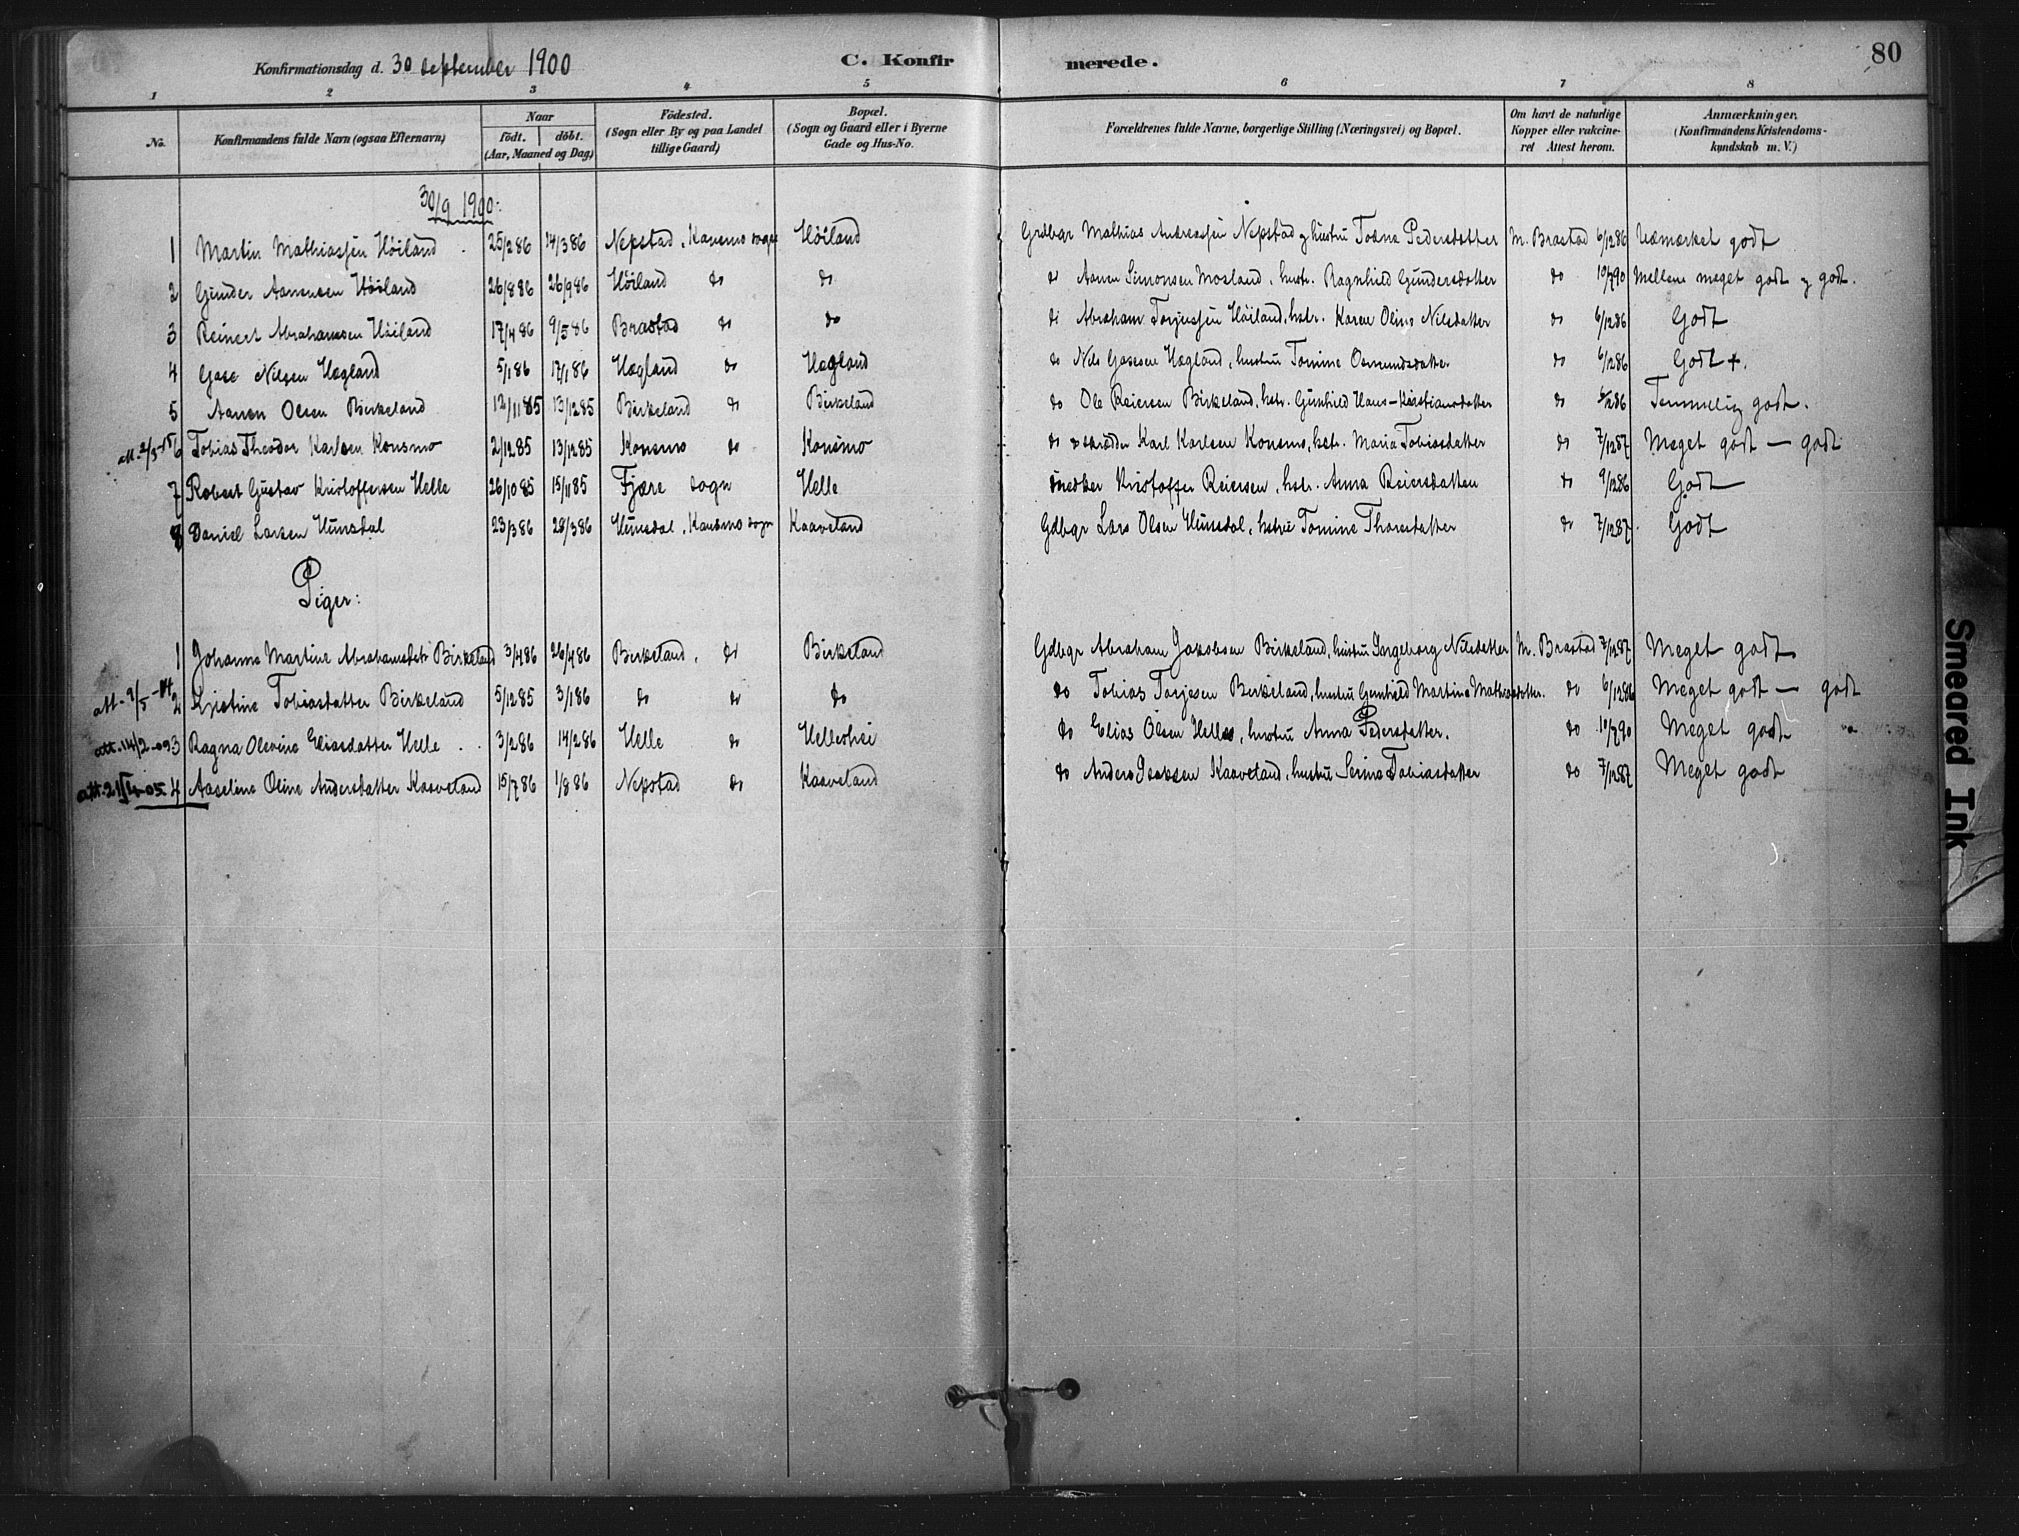 Konfirmationsdag d. 30 september 1900 C. Konfirmerede. 80
1 2 3 4 5 6 7 8
No. Konfirmandens fulde Navn (ogsaa Efternavn) Naar födt. döbt. (Aar, Maaned og Dag) Födested. (Sogn eller By og paa Landet tillige Gaard) Bopæl. (Sogn og Gaard eller i Byerne Gade og Hus-No. Forældrenes fulde Navne, borgerlige Stilling (Næringsvei) og Bopæl. Om havt de naturlige Kopper eller vakcineret Attest herom. Anmærkninger. (Konfirmandens Kristendomskundskab m. V.)
30/9 1900:
1 Martin Mathiassen Höiland 25/2 86 14/3 86 Nepstad, Konsmo sogn Höiland Grdbgr Mathias Andreassen Nepstad og hustru Todne Pedersdatter M. Brastad 6/12 86 Udmærket godt
2 Gunder Aanensen Höiland 26/8 86 26/9 86 Höiland do do do Aanen Simonsen Mosland, hustr. Ragnhild Gundersdatter do 10/7 90 Mellem meget godt og godt.
3 Reinert Abrahamsen Höiland 17/4 86 9/5 86 Brastad do do do Abraham Torjussen Höiland, hstr. Karen Oline Nilsdatter do 6/12 86 Godt
4 Gase Nilsen Hægland 5/1 86 17/1 86 Hægland do Hægland do Nils Gasesen Hægland, hustru Tomine Osmundsdatter do 6/12 86 Godt +.
5 Aanen Olsen Birkeland 12/11 85 13/12 85 Birkeland do Birkeland do Ole Reiersen Birkeland, hstr. Gunhild Hans-Kristiansdatter do 6/12 86 Temmelig godt.
6 Tobias Theodor Karlsen Konsmo 2/12 85 13/12 85 Konsmo do Konsmo do skrædder Karl Karlsen Konsmo, hstr. Maria Tobiasdatter do 7/12 87 Meget godt — godt
7 Robert Gustav Kristoffersen Helle 26/10 85 15/11 85 Fjære sogn Helle snedker Kristoffer Reiersen, hstr. Anna Reiersdatter do 9/12 86 Godt
8 Daniel Larsen Hunsdal 23/3 86 28/3 86 Hunsdal, Konsmo sogn Kaaveland Gdbgr Lars Olsen Hunsdal, hstru Tomine Thoresdatter do 7/12 87 Godt
Piger:
1 Johanne Martine Abrahamsdatr Birkeland 3/4 86 26/4 86 Birkeland, do Birkeland Gdbgr Abraham Jakobsen Birkeland, hustru Ingeborg Nilsdatter M. Brastad 7/12 87 Meget godt
att. 2/5-04 2 Kristine Tobiasdatter Birkeland 5/12 85 3/1 86 do do do do Tobias Torjesen Birkeland, hustru Gunhild Martine Mathiasdatter. do 6/12 86 Meget godt — godt
att. 14/2-03 3 Ragna Olevine Eliasdatter Helle 3/2 86 14/2 86 Helle do Hellerhei do Elias Olsen Helle, hustru Anna Pedersdatter. do 10/7 90 Meget godt
att. 21/4-05 4 Aaseline Oline Andersdatter Kaaveland 15/7 86 1/8 86 Nepstad do Kaaveland do Anders Isaksen Kaaveland, hustru Serine Tobiasdatter do 7/12 87 Meget godt
Smeared Ink